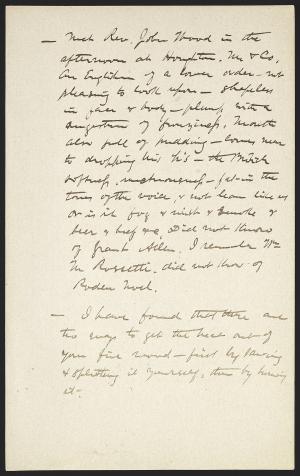 — Met Rev. John Wood in the
afternoon at Houghton, M. & Co.
An Englishman of a lower order — not
pleasing to look upon — shapeless
in face & body — plump, with a
suggestion of fuzziness, mouth
also full of pudding — comes near
to dropping his h's — the British
softness, — get — in the
tones of the voice, & not lean like us
or is it fog & mist & smoke &
beer & beef &c. Did not know
of Grant Allen. I Wm
M. Rossetti, did not know of
Roden Noel.
— I have found that there are
two ways to get the heat out of
your fire wood — first by sawing
& splitting it yourself, then by burning
it —